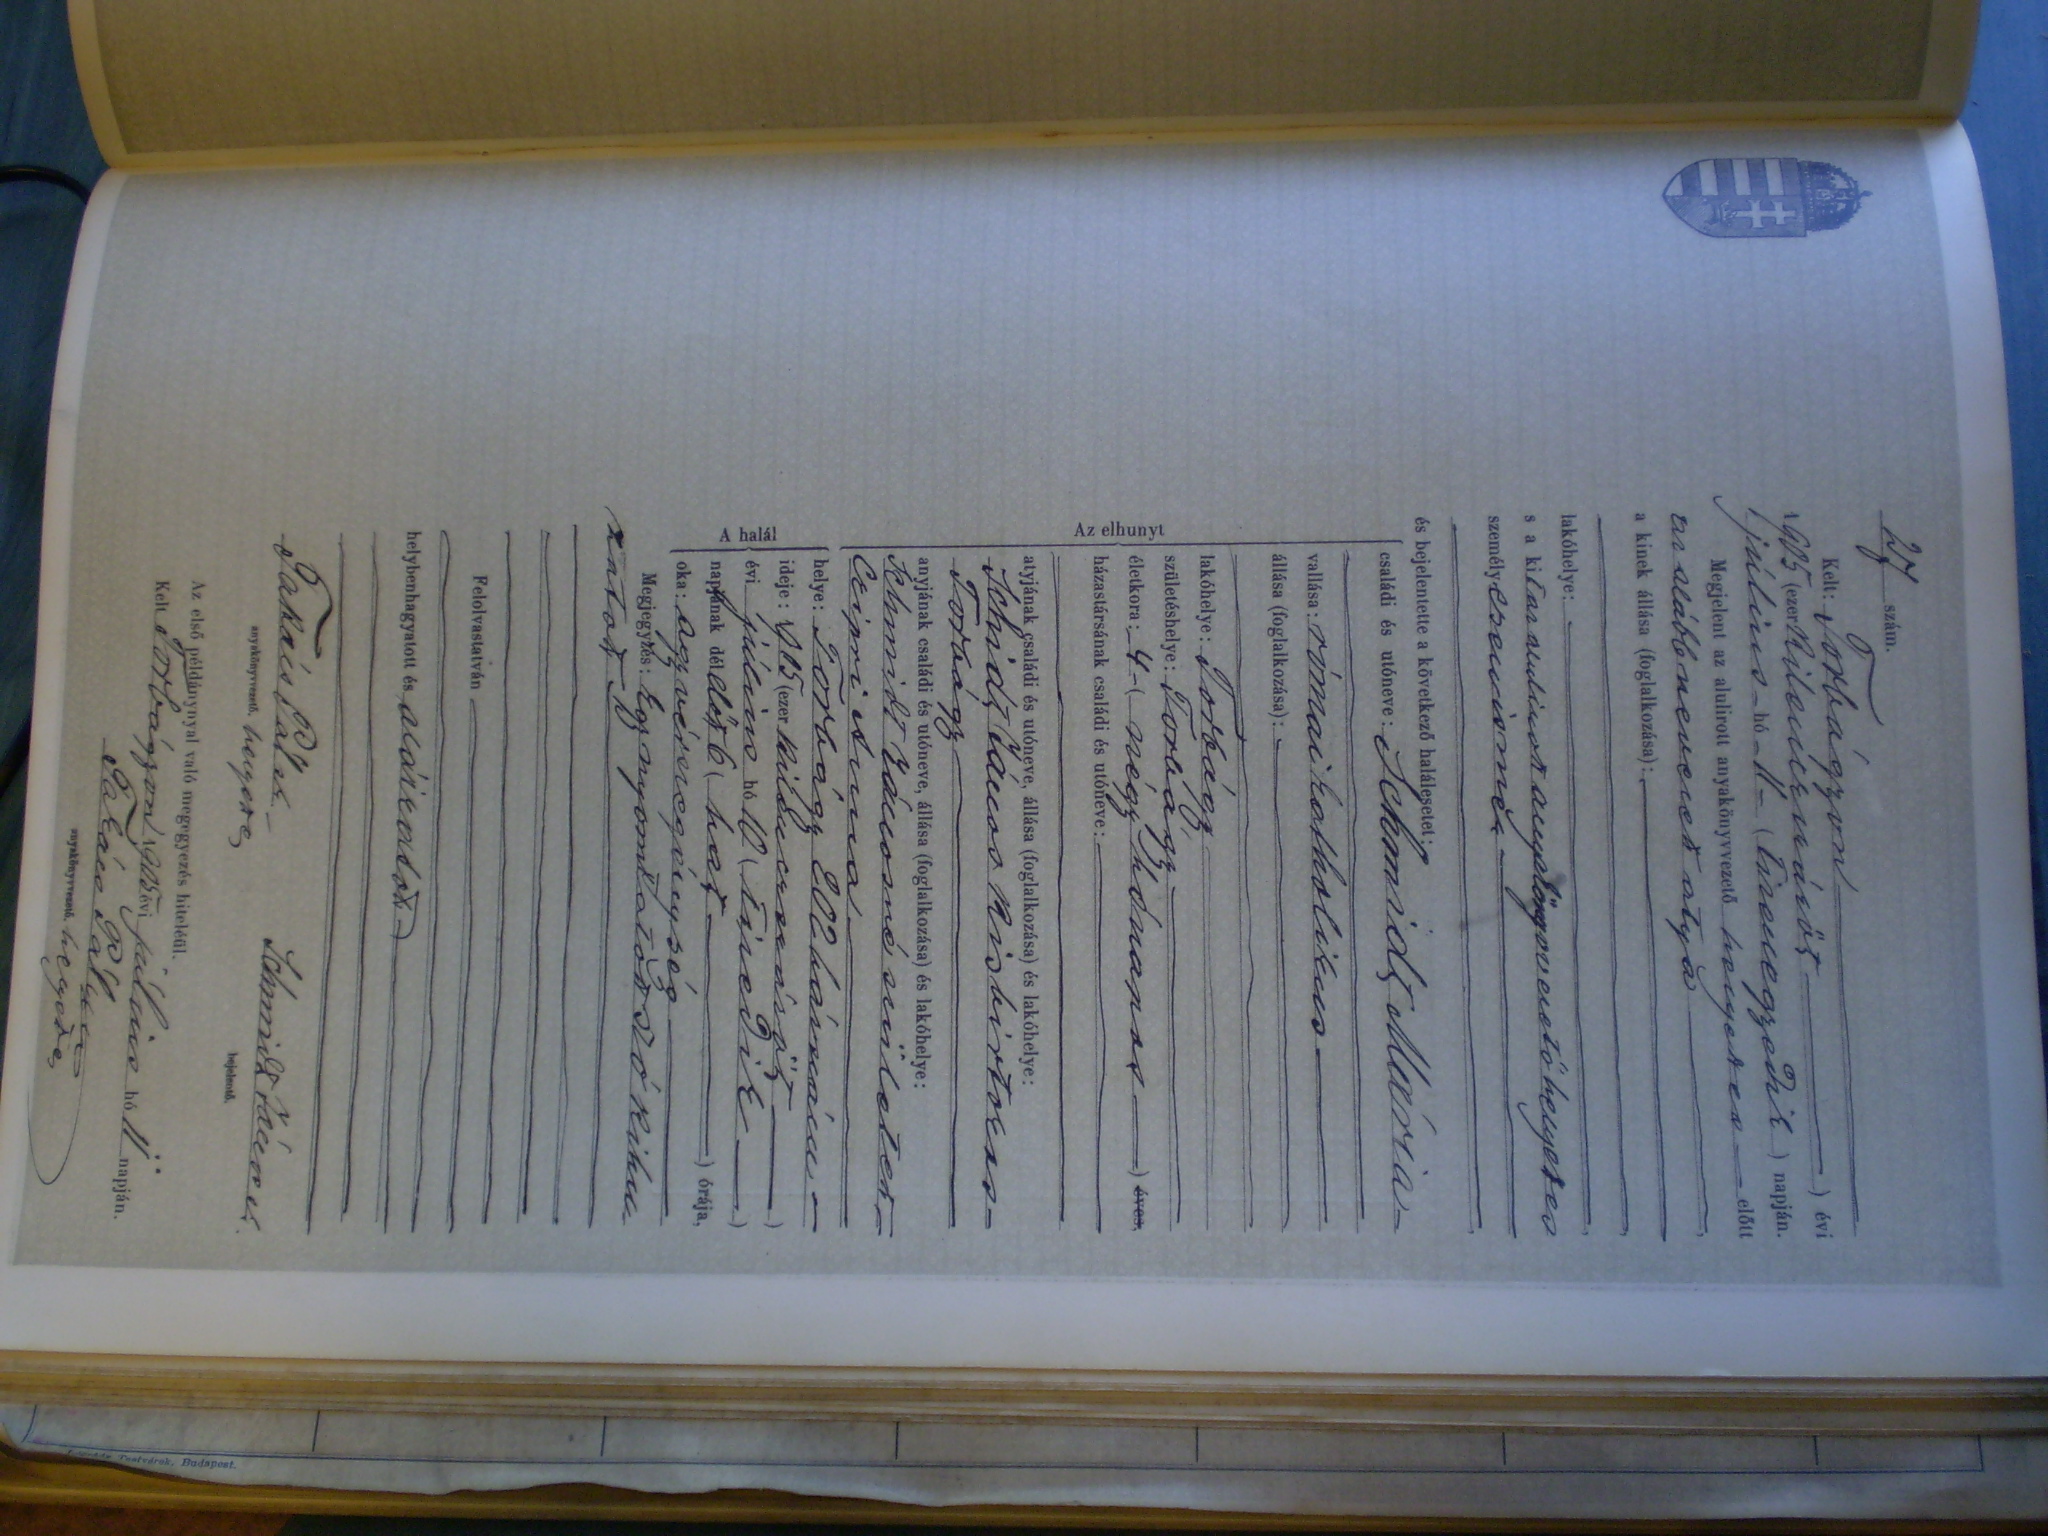 27 szám.
Kelt: Torbágyon
1905 (ezer kilenczszázöt ) évi
július hó 11 ( tizenegyedik ) napján.
Megjelent az alulirott anyakönyvvezető helyettes előtt
az alább nevezett atya
a kinek állása (foglalkozása):
lakóhelye:
s a kit az alulirott anyakönyvvezető helyettes
személyesen ismer
és bejelentette a következő halálesetet:
Az elhunyt
családi és utóneve: Schmidt Mária
vallása: római katholikus
állása (foglalkozása):
lakóhelye: Torbágy
születéshelye: Torbágy
életkora: 4 ( négy hónapos ) éves,
házastársának családi és utóneve:
atyjának családi és utóneve, állása (foglalkozása) és lakóhelye:
Schmidt János kisbirtokos
Torbágy
anyjának családi és utóneve, állása (foglalkozása) és lakóhelye:
Schmidt Jánosné született
A halál
helye: Torbágy 202 házszám
ideje: 1905 (ezer kilenczszázöt )
évi július hó 10 ( tizedik )
napjának dél előtt 6 ( hat ) órája,
oka: agyvérszegénység
Megjegyzés: Egy nyomtatott szó kihu
zatott
Felolvastatván
helybenhagyatott és aláíratott
Takáts Pál
anyakönyvvezető. helyettes
Schmidt János
bejelentő.
Az első példánynyal való megegyezés hiteléül.
Kelt Torbágyon 1905 évi július hó 11 napján.
Takáts Pál
anyakönyvvezető. helyettes
Testvérek, Budapest.